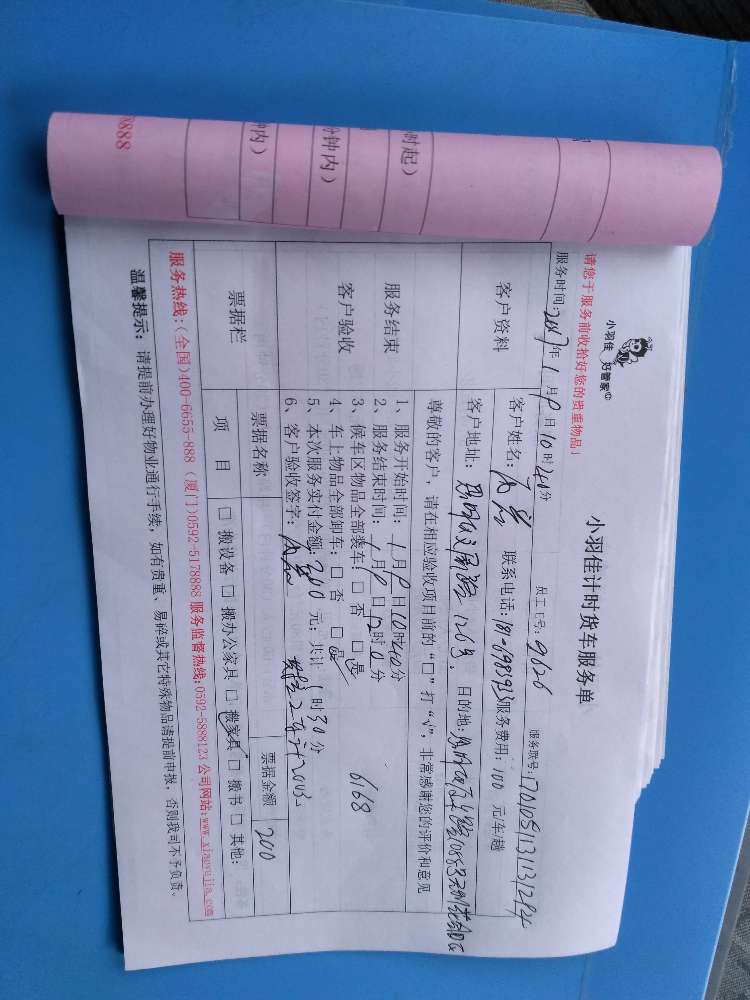 小羽佳
好管家©
小羽佳计时货车服务单
请您于服务前收拾好您的贵重物品！
员工工号：9626
服务联号：
服务时间：2017年1月8日10时40分
客户资料
客户姓名：
联系电话：
服务费用：100 元/车/趟
客户地址：
126号
目的地：
尊敬的客户，请在相应验收项目前的“□”打“√”，非常感谢您的评价和意见
服务结束
客户验收
1、服务开始时间：1月8日10时40分
2、服务结束时间：1月8日12时0分
3、候车区物品全部装车：□ 否 □是
4、车上物品全部卸车：□ 否 □是
6168
5、本次服务实付金额：200 元；共计 1时30分
6、客户验收签字：
票据栏
票据名称
票据金额
200
项 目
□ 搬设备 □ 搬办公家具 □ 搬家具 □ 搬书 □ 其他：
服务热线：(全国)400-6655-888 (厦门)0592-5178888 服务监督热线:0592-5888123 公司网站:www.xiaoyujia.com
温馨提示：请提前办理好物业通行手续，如有贵重、易碎或其它特殊物品请提前申报，否则我司不予负责。
时起）
钟内）
内）
8888